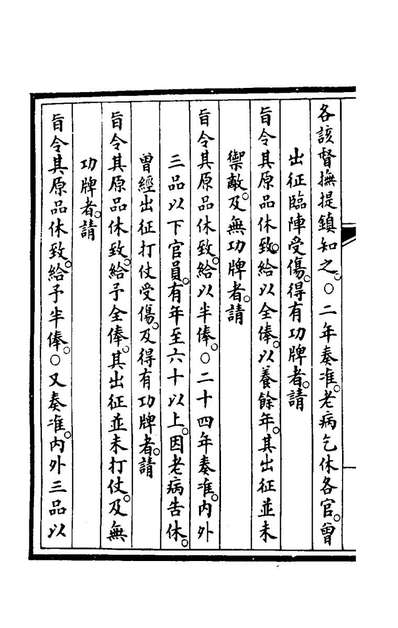 各該督撫提鎮知之。○二年奏准。老病乞休各官。曾
出征臨陣受傷。得有功牌者。請
旨令其原品休致。給以全俸。以養餘年。其出征並未
禦敵。及無功牌者。請
旨令其原品休致。給以半俸。○二十四年奏准。內外
三品以下官員。有年至六十以上。因老病告休。
曾經出征打仗受傷。及得有功牌者。請
旨令其原品休致。給予全俸。其出征並未打仗。及無
功牌者。請
旨令其原品休致。給予半俸。○又奏准。內外三品以